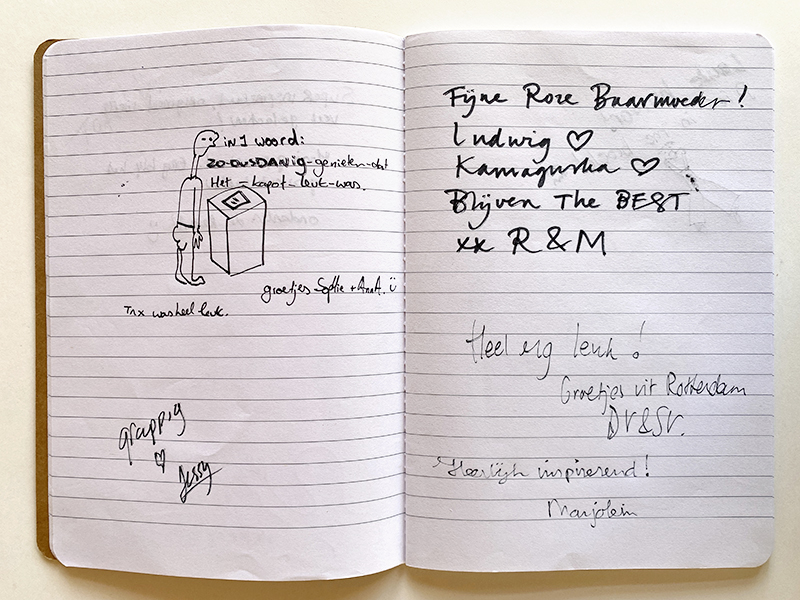 in 1 woord:
zo-dusDANig-genieten-dat
Het - kapot - leuk - was.
groetjes Sofie + AnnA.
Tnx was heel leuk.
grappig
♡
Jessy
Fijne Roze Baarmoeder!
Ludwig ♡
Kamagurka ♡
Blijven The BEST
xx R & M
Heel erg leuk!
Groetjes uit Rotterdam
DV & SV.
Heerlijk inspirerend!
Marjolein